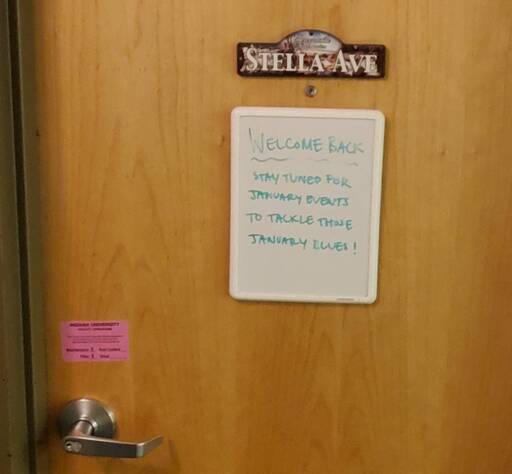 STELLA AVE
WELCOME BACK
STAY TUNED FOR
JANUARY EVENTS
TO TACKLE THOSE
JANUARY BLUES!
INDIANA UNIVERSITY